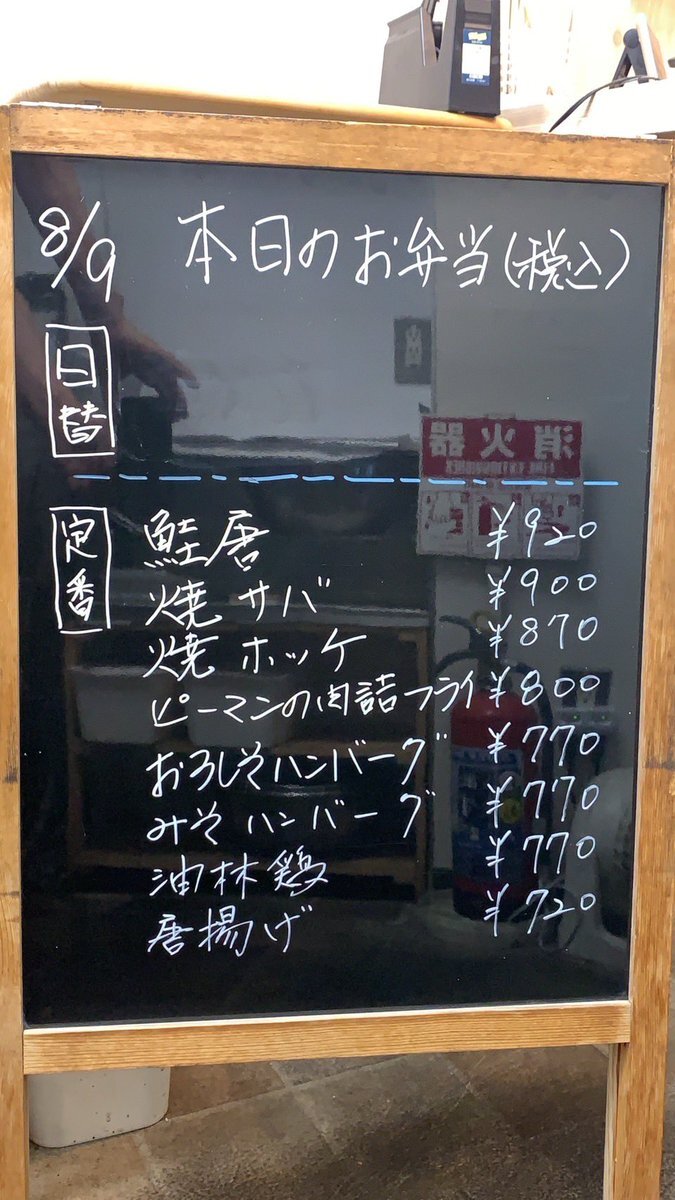 8/9 本日のお弁当(税込)
日替
定番
鮭唐 ¥920
焼サバ ¥900
焼ホッケ ¥870
ピーマンの肉詰フライ ¥800
おろしそハンバーグ ¥770
みそハンバーグ ¥770
油林鶏 ¥770
唐揚げ ¥720
消火器